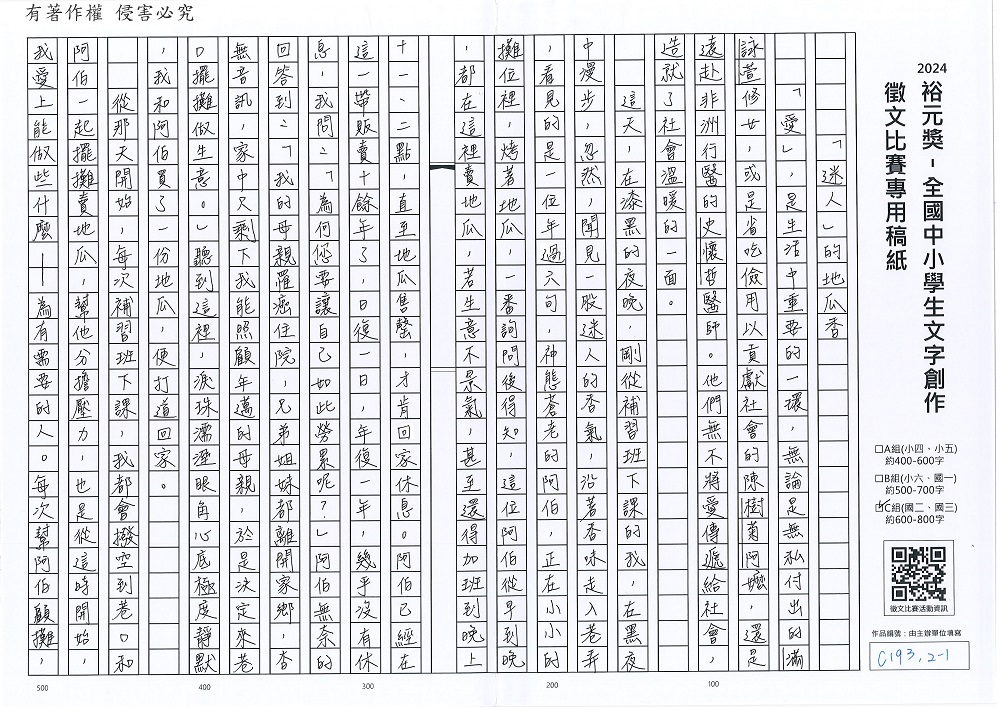 有著作權 侵害必究
2024
裕元獎-全國中小學生文字創作
徵文比賽專用稿紙
□A組(小四、小五)
約400-600字
□B組(小六、國一)
約500-700字
☑C組(國二、國三)
約600-800字
徵文比賽活動資訊
作品編號：由主辦單位填寫
C193,2-1
「迷人」的地瓜香
「愛」，是生活中重要的一環，無論是無私付出的滿
詠萱修女，或是省吃儉用以貢獻社會的陳樹菊阿嬤，還是
遠赴非洲行醫的史懷哲醫師。他們無不將愛傳遞給社會，
造就了社會溫暖的一面。
這天，在漆黑的夜晚，剛從補習班下課的我，在黑夜
中漫步，忽然，聞見一股迷人的香氣，沿著香味走入巷弄
，看見的是一位年過六旬，神態蒼老的阿伯，正在小小的
攤位裡，烤著地瓜，一番詢問後得知，這位阿伯從早到晚
，都在這裡賣地瓜，若生意不景氣，甚至還得加班到晚上
十一、二點，直至地瓜售罄，才肯回家休息。阿伯已經在
這一帶販賣十餘年了，日復一日，年復一年，幾乎沒有休
息，我問：「為何您要讓自己如此勞累呢？」阿伯無奈的
回答到：「我的母親罹癌住院，兄弟姐妹都離開家鄉，杳
無音訊，家中只剩下我能照顧年邁的母親，於是決定來巷
口擺攤做生意。」聽到這裡，淚珠濡溼眼角，心底極度靜默
，我和阿伯買了一份地瓜，便打道回家。
從那天開始，每次補習班下課，我都會撥空到巷口和
阿伯一起擺攤賣地瓜，幫他分擔壓力，也是從這時開始，
我愛上能做些什麼——為有需要的人。每次幫阿伯顧攤，
100
200
300
400
500